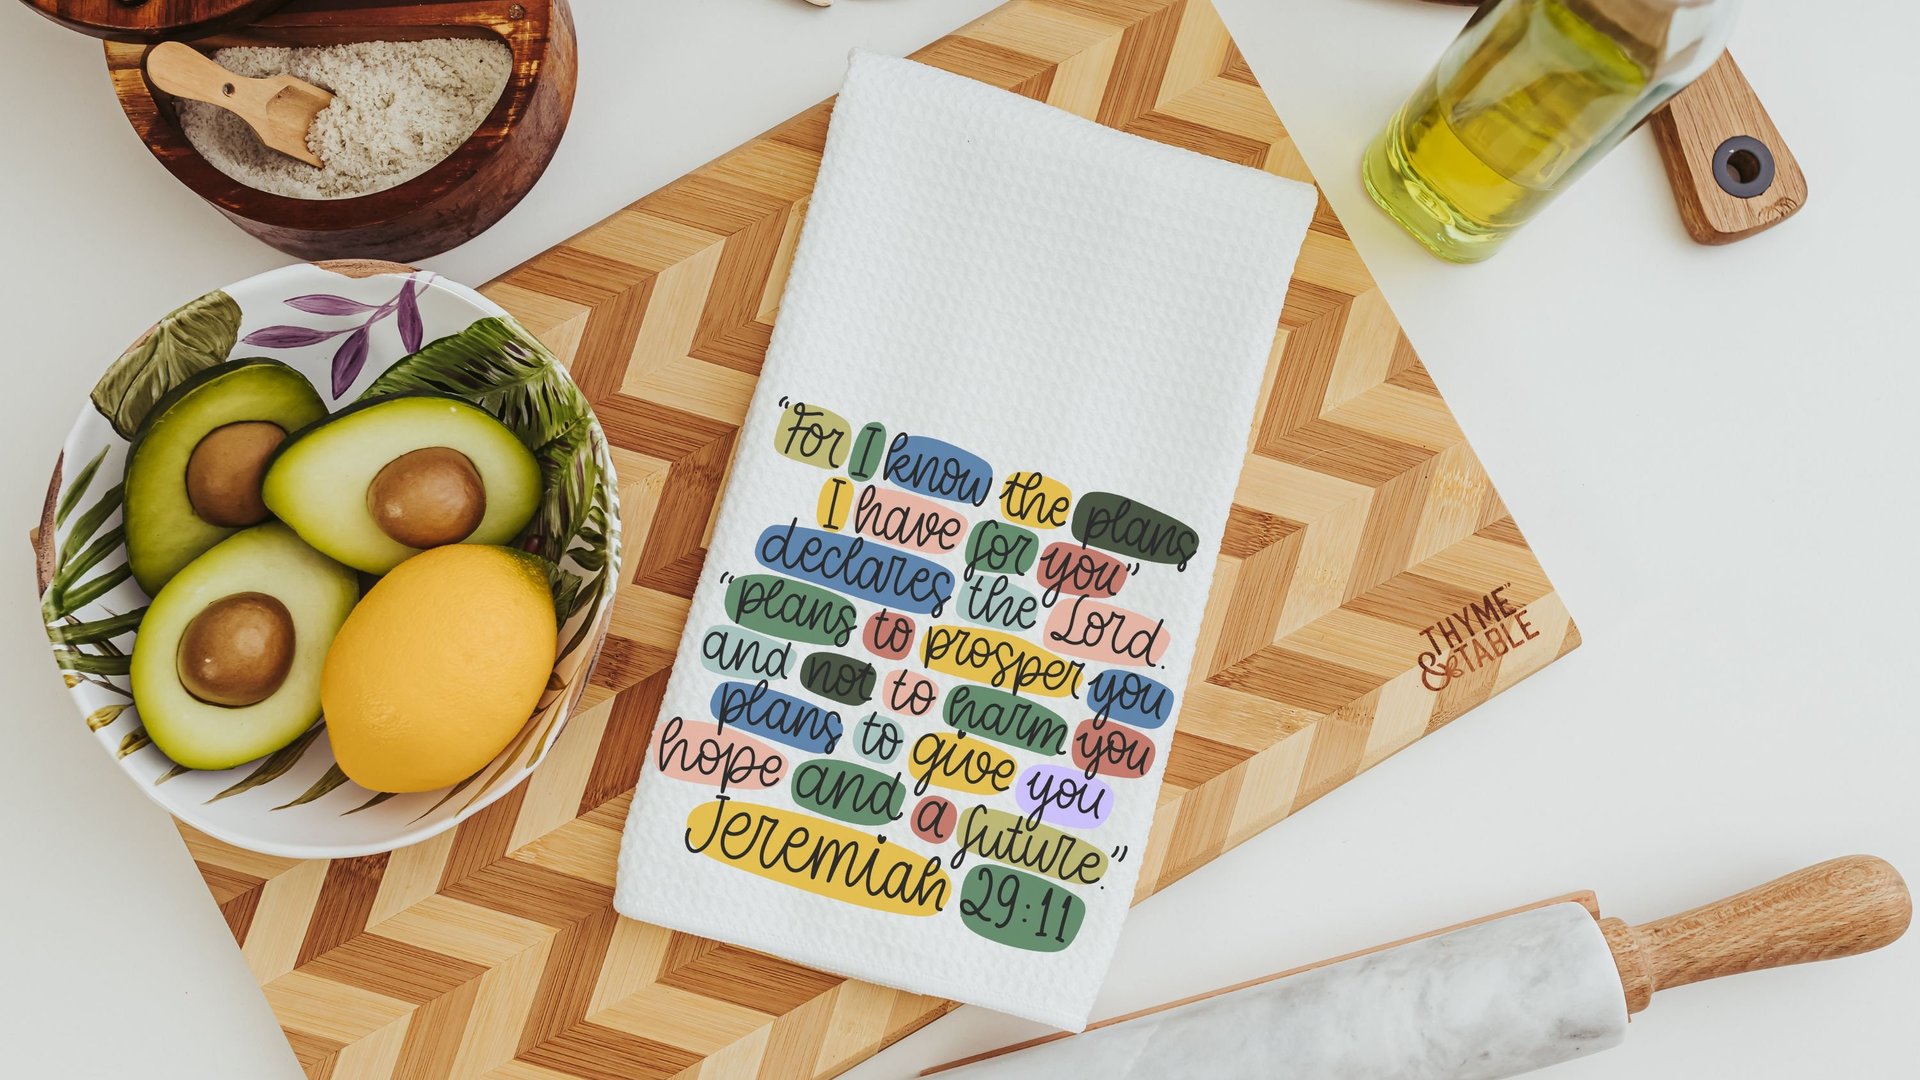 “For I know the plans
I have for you”
declares the Lord.
“plans to prosper you
and not to harm you
plans to give you
hope and a future.”
Jeremiah 29:11
THYME
&TABLE